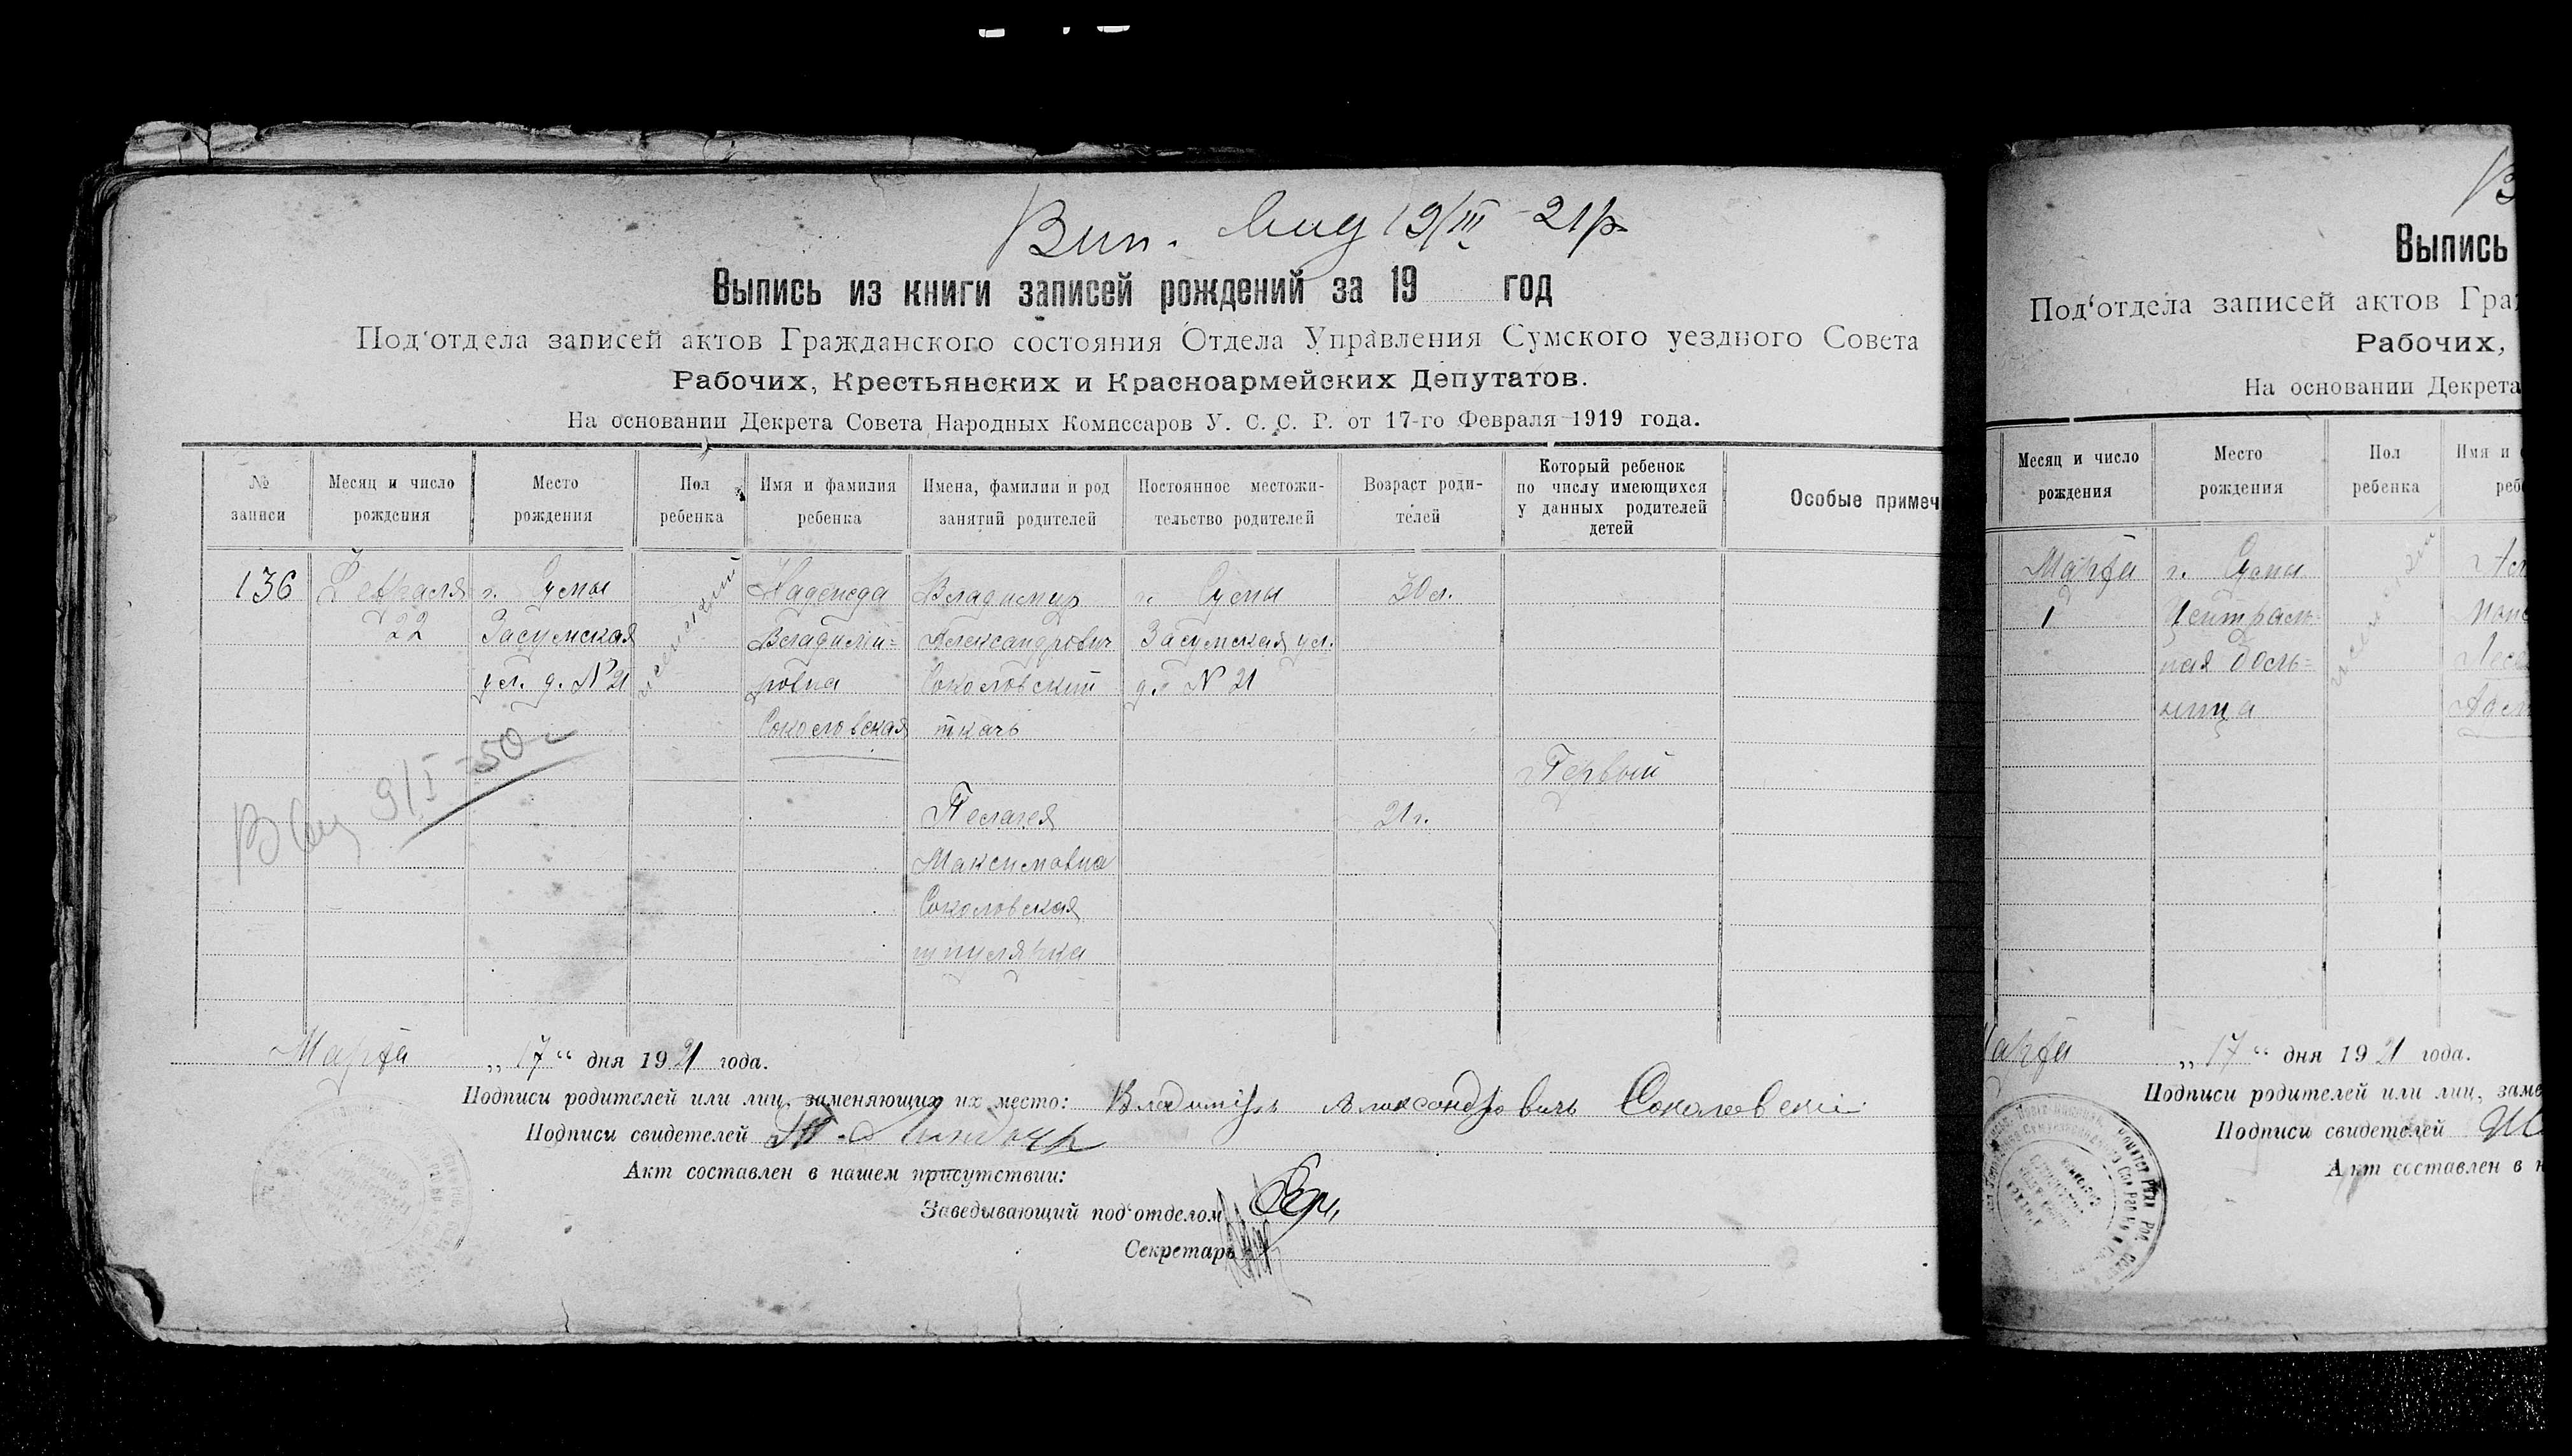 Вип. 19/III 21р
Выпись из книги записей рождений за 19 год
Под‘отдела записей актов Гражданского состояния Отдела Управления Сумского уездного Совета
Рабочих, Крестьянских и Красноармейских Депутатов.
На основании Декрета Совета Народных Комиссаров У. С. С. Р. от 17-го Февраля 1919 года.
№ записи
Месяц и число рождения
Место рождения
Пол ребенка
Имя и фамилия ребенка
Имена, фамилии и род занятий родителей
Постоянное местожительство родителей
Возраст родителей
Который ребенок по числу имеющихся у данных родителей детей
Особые примеч
136
Февраля
22
г. Сумы
Засумская
ул. д. № 21
женский
Надежда
Владими=
ровна
Соколовская
Владимир
Александрович
Соколовский
ткачь
г. Сумы
Засумская ул.
д. № 21
30 л.
Первый
Пелагея
Максимовна
Соколовская
шпулярка
21 г.
9/I-50
Марта „17“ дня 1921 года.
Подписи родителей или лиц, заменяющих их место: Владимiръ Александровичь Соколовскiй
Подписи свидетелей
Акт составлен в нашем присутствии:
Заведывающий под‘отделом
Секретарь
Выпись
Под‘отдела записей актов Гра
Рабочих,
На основании Декрета
Месяц и число рождения
Место рождения
Пол ребенка
Имя и
реб
Марта
1
г. Сумы
Централь=
ная боль=
ница
„17“ дня 1921 года.
Подписи родителей или лиц, заме
Подписи свидетелей
Акт составлен в н